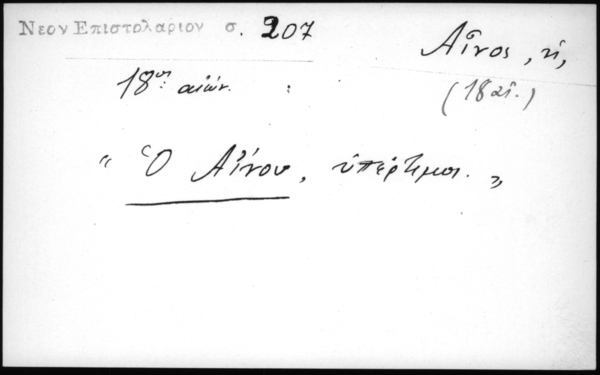 Νεον Επιστολαριον σ. 207
Αἶνος, ἡ,
18ου αἰών. :
(18 αἰ.)
“ Ὁ Αἴνου, ὑπέρτιμοι. „